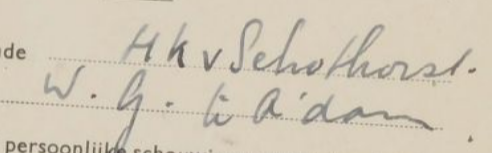 de H K v Schothorst.
W. G. te A'dam
persoonlijke